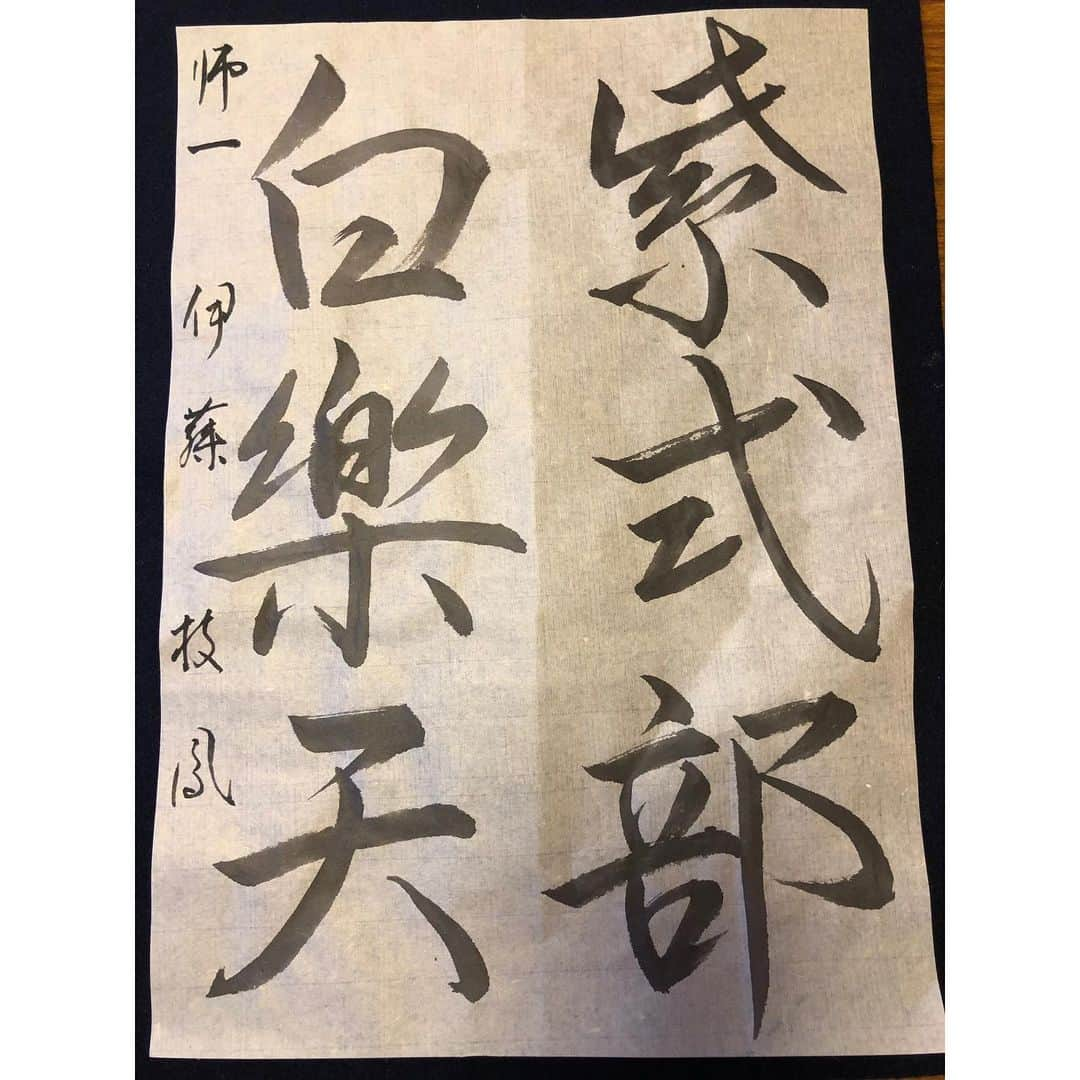 紫式部
白樂天
师一 伊藤枝鳳